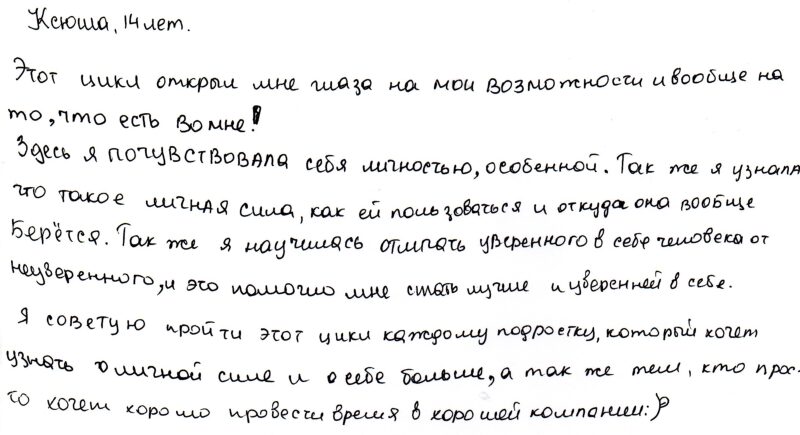 Ксюша, 14 лет.
Этот цикл открыл мне глаза на мои возможности и вообще на
то, что есть во мне!
Здесь я почувствовала себя личностью, особенной. Так же я узнала
что такое личная сила, как ей пользоваться и откуда она вообще
берётся. Так же я научилась отличать уверенного в себе человека от
неуверенного, и это помогло мне стать лучше и уверенней в себе.
Я советую пройти этот цикл каждому подростку, который хочет
узнать о личной силе и о себе больше, а так же тем, кто прос-
то хочет хорошо провести время в хорошей компании :)